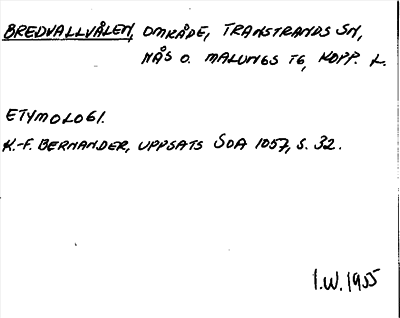 BREDVALLVÅLEN, OMRÅDE, TRANSTRANDS SN,
NÅS O. MALUNGS TG, KOPP. L.
ETYMOLOGI.
K.-F. BERNANDER, UPPSATS SOA 1057, S. 32.
I.W. 1955